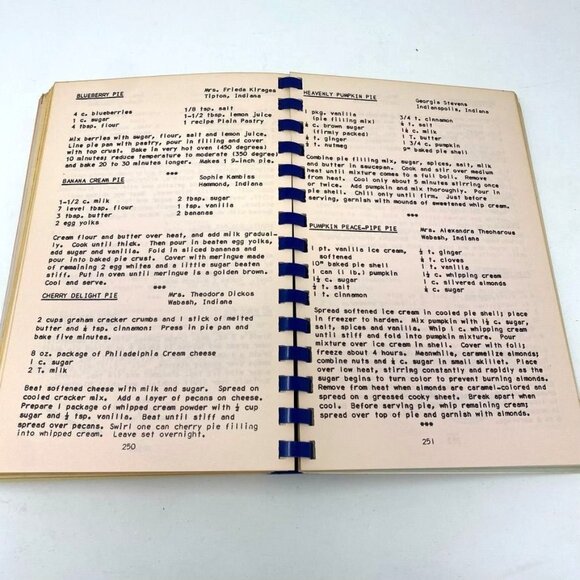 BLUEBERRY PIE
Mrs. Frieda Kirages
Tipton, Indiana
4 c. blueberries
1 c. sugar
4 tbsp. flour
1/8 tsp. salt
1-1/2 tbsp. lemon juice
1 recipe Plain Pastry
Mix berries with sugar, flour, salt and lemon juice.
Line pie pan with pastry, pour in filling and cover
with top crust. Bake in very hot oven (450 degrees)
10 minutes; reduce temperature to moderate (350 degree)
and bake 20 to 30 minutes longer. Makes 1 9-inch pie.
***
BANANA CREAM PIE
Sophie Kambiss
Hammond, Indiana
1-1/2 c. milk
7 level tbsp. flour
3 tbsp. butter
2 egg yolks
2 tbsp. sugar
1 tsp. vanilla
2 bananas
Cream flour and butter over heat, and add milk gradual-
ly. Cook until thick. Then pour in beaten egg yolks,
add sugar and vanilla. Fold in sliced bananas and
pour into baked pie crust. Cover with meringue made
of remaining 2 egg whites and a little sugar beaten
stiff. Put in oven until meringue is a golden brown.
Cool and serve.
***
CHERRY DELIGHT PIE
Mrs. Theodora Dickos
Wabash, Indiana
2 cups graham cracker crumbs and 1 stick of melted
butter and ½ tsp. cinnamon: Press in pie pan and
bake five minutes.
8 oz. package of Philadelphia Cream cheese
1 c. sugar
2 T. milk
Beat softened cheese with milk and sugar. Spread on
cooled cracker mix. Add a layer of pecans on cheese.
Prepare 1 package of whipped cream powder with ½ cup
sugar and ½ tsp. vanilla. Beat until stiff and
spread over pecans. Swirl one can cherry pie filling
into whipped cream. Leave set overnight.
250
HEAVENLY PUMPKIN PIE
Georgia Stevens
Indianapolis, Indiana
1 pkg. vanilla
(pie filling mix)
c. brown sugar
(firmly packed)
t. ginger
t. nutmeg
3/4 t. cinnamon
t. salt
c. milk
1 T. butter
1 3/4 c. pumpkin
9" baked pie shell
Combine pie filling mix, sugar, spices, salt, milk
and butter in saucepan. Cook and stir over medium
heat until mixture comes to a full boil. Remove
from heat. Cool only about 5 minutes stirring once
or twice. Add pumpkin and mix thoroughly. Pour in
pie shell. Chill only until firm. Just before
serving, garnish with mounds of sweetened whip cream.
***
PUMPKIN PEACE-PIPE PIE
Mrs. Alexandra Theoharous
Wabash, Indiana
1 pt. vanilla ice cream,
softened
10" baked pie shell
1 can (1 lb.) pumpkin
1½ c. sugar
t. salt
1 t. cinnamon
t. ginger
t. cloves
1 t. vanilla
c. whipping cream
1 c. slivered almonds
c. sugar
Spread softened ice cream in cooled pie shell; place
in freezer to harden. Mix pumpkin with 1½ c. sugar,
salt, spices and vanilla. Whip 1 c. whipping cream
until stiff and fold into pumpkin mixture. Pour
mixture over ice cream in shell. Cover with foil;
freeze about 4 hours. Meanwhile, caramelize almonds;
combine nuts and ¼ c. sugar in small skillet. Place
over low heat, stirring constantly and rapidly as the
sugar begins to turn color to prevent burning almonds.
Remove from heat when almonds are caramel-colored and
spread on a greased cooky sheet. Break apart when
cool. Before serving pie, whip remaining cream;
spread over top of pie and garnish with almonds.
***
251